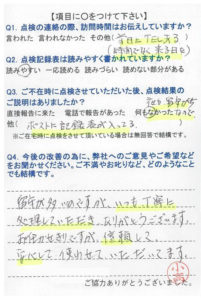 【項目に○をつけて下さい】
Q1. 点検の連絡の際、訪問時間はお伝えしていますか？
言われた 言われなかった その他(前日にTELあり)
Q2. 点検記録表は読みやすく書かれていますか？
読みやすい 一応読める 読みづらい 読めない部分がある
Q3. ご不在時に点検させていただいた後、点検結果の
ご説明はありましたか？
直接報告に来た 電話で報告があった 何もなかった
その他( ポストに記録表が入ってる )
※ご在宅時に点検をさせて頂いている場合は無回答で結構です。
Q4. 今後の改善の為に、弊社へのご意見やご希望など
をお聞かせください。ご不満やお叱りなど、どのようなこと
でも結構です。
留守が多いのですが、いつも丁寧に
処理していただきありがとうございます。
信頼して
安心して使わせていただいてます。
ご協力ありがとうございました。